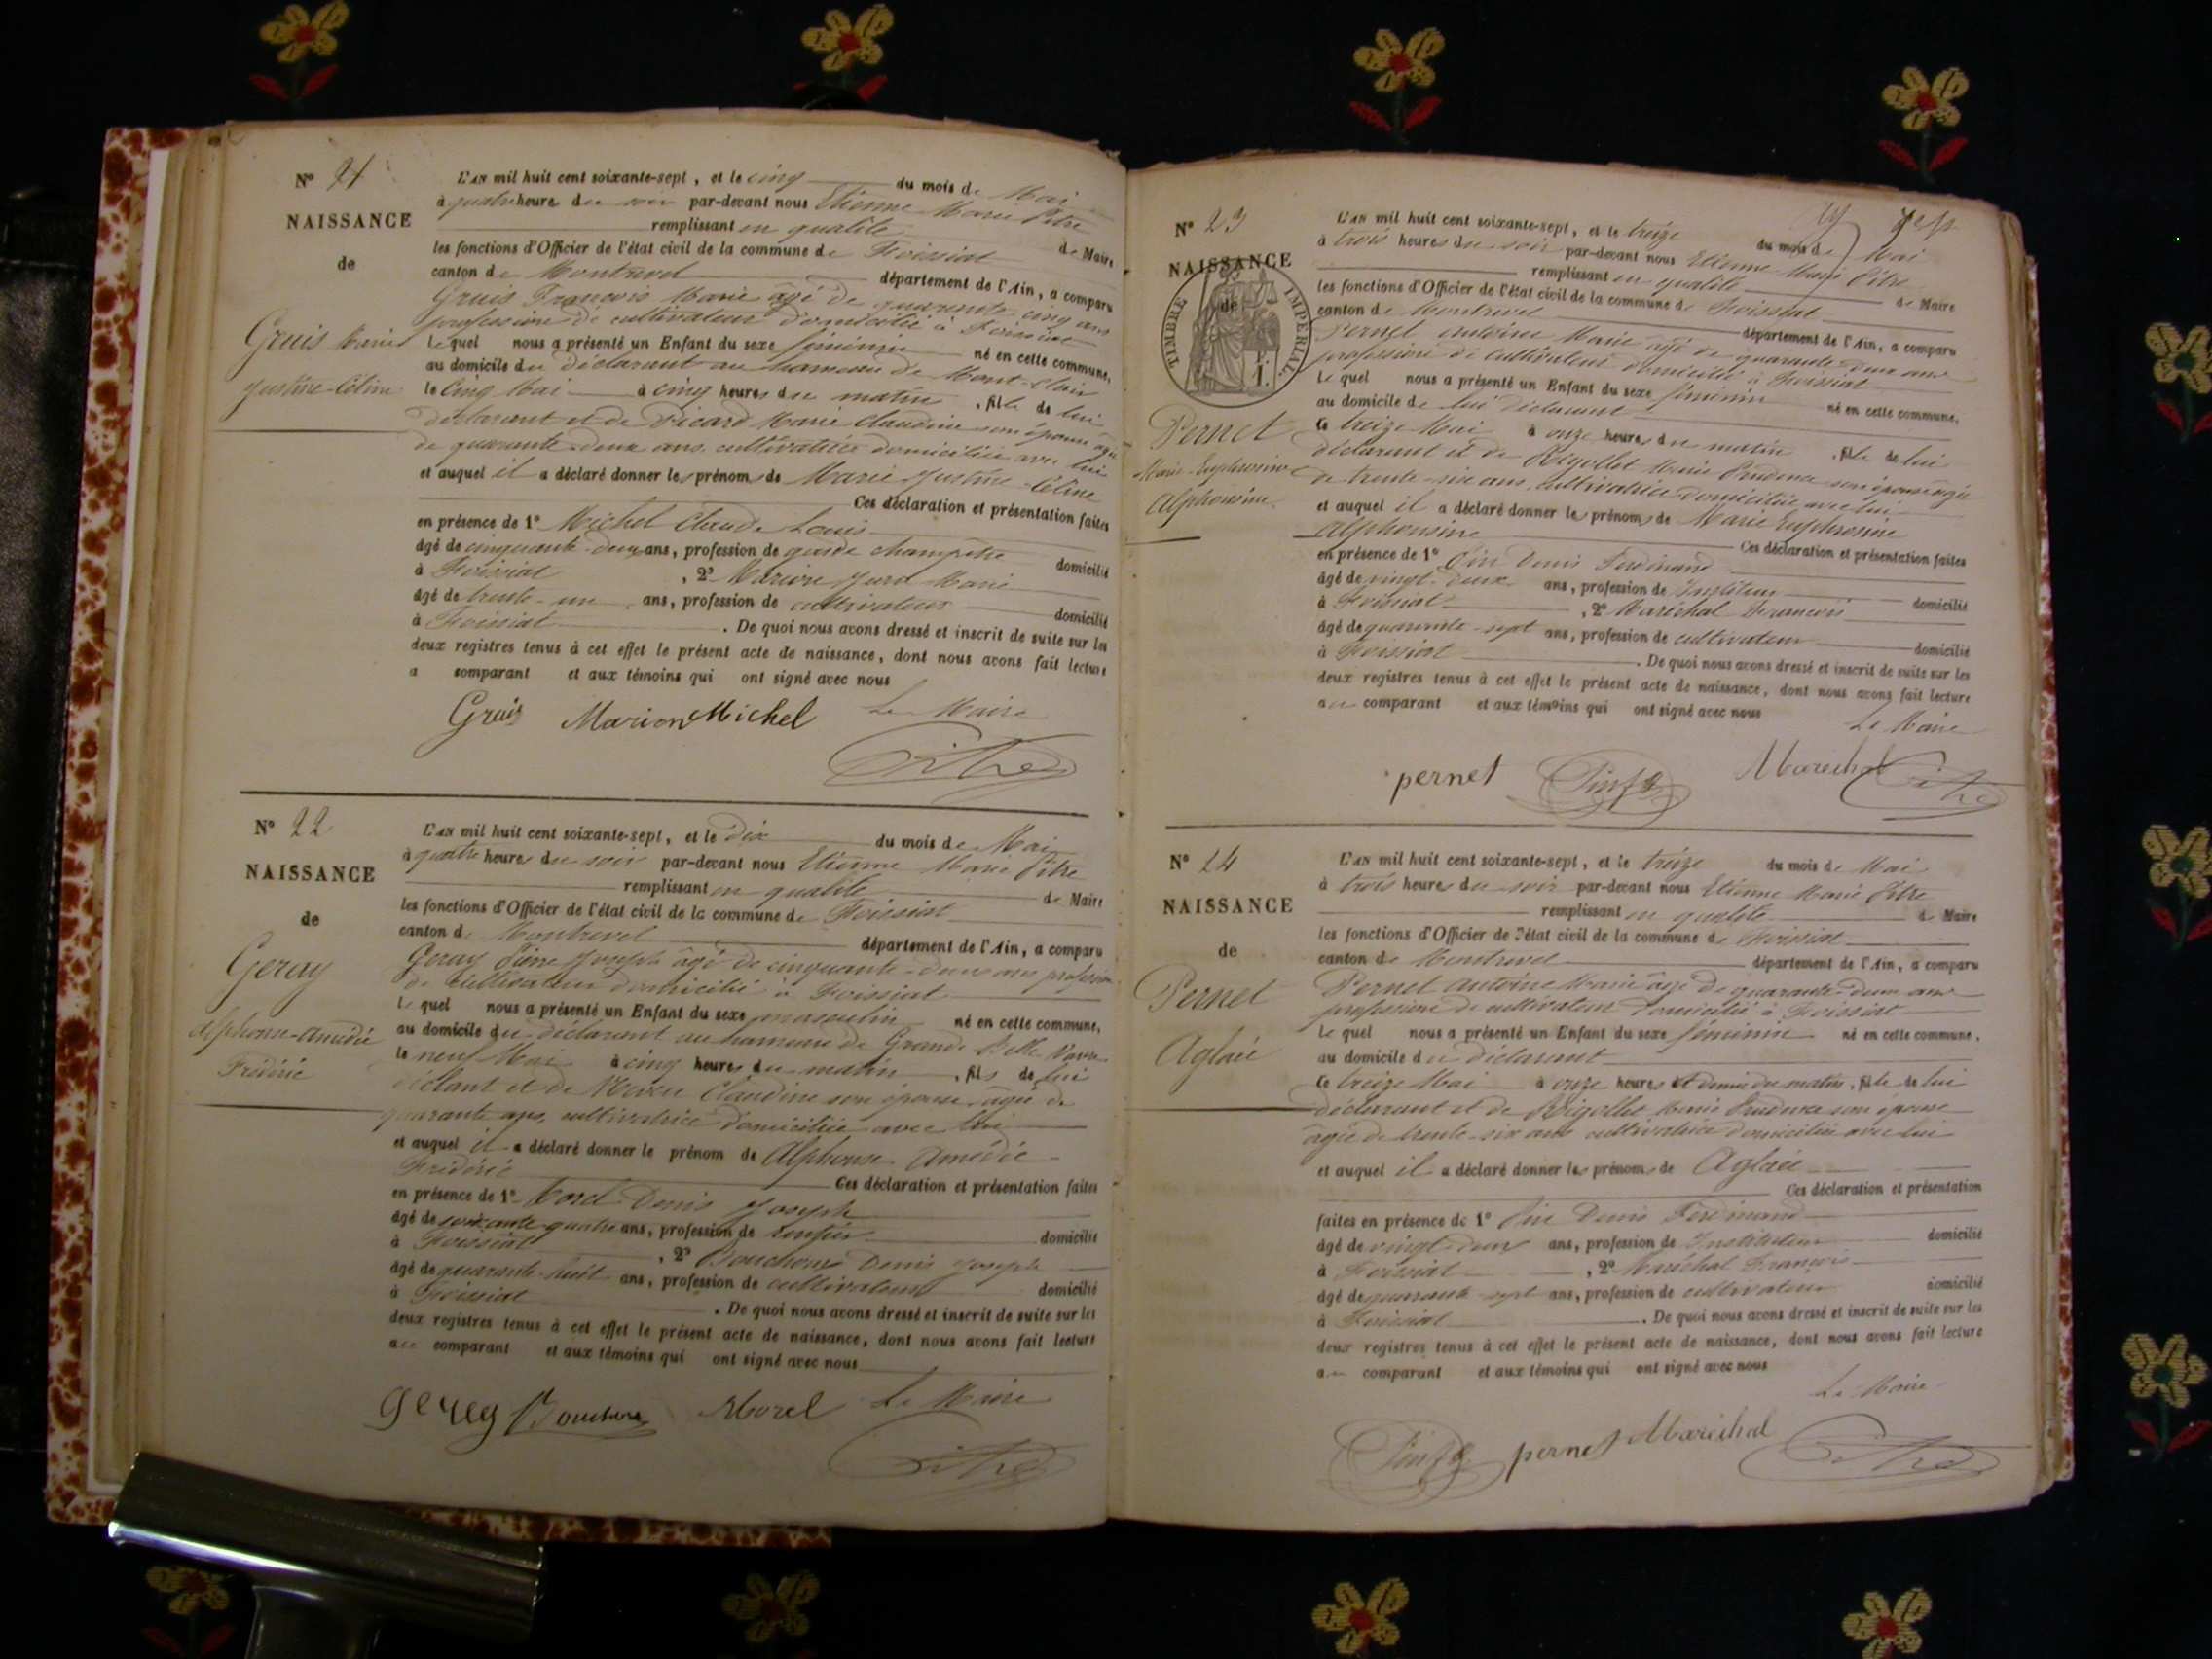 N° 21
NAISSANCE
de
Gruis Marie
Justine-Céline
L'AN mil huit cent soixante-sept, et le cinq du mois de Mai
à quatre heures du soir par-devant nous Etienne Marie Pitre
remplissant en qualité de Maire
les fonctions d'Officier de l'état civil de la commune de Foissiat
canton de Montrevel département de l'Ain, a comparu
Gruis François Marie âgé de quarante-cinq ans
profession de cultivateur domicilié à Foissiat
Lequel nous a présenté un Enfant du sexe féminin né en cette commune,
au domicile du déclarant au hameau de Mont-Clair
le cinq Mai à cinq heures du matin, fille de lui
déclarant et de Picard Marie Claudine son épouse âgée
de quarante-deux ans, cultivatrice domiciliée avec lui
et auquel il a déclaré donner les prénoms de Marie Justine-Céline
Ces déclaration et présentation faites
en présence de 1° Michel Claude Louis
âgé de cinquante-deux ans, profession de garde champêtre domicilié
à Foissiat, 2° Marion Marie
âgé de trente-un ans, profession de cultivateur domicilié
à Foissiat. De quoi nous avons dressé et inscrit de suite sur les
deux registres tenus à cet effet le présent acte de naissance, dont nous avons fait lecture
a comparant et aux témoins qui ont signé avec nous
Gruis Marion Michel Le Maire
Pitre
N° 22
NAISSANCE
de
Geray
Alphonse-Amédée
Frédéric
L'AN mil huit cent soixante-sept, et le Dix du mois de Mai
à quatre heures du soir par-devant nous Etienne Marie Pitre
remplissant en qualité de Maire
les fonctions d'Officier de l'état civil de la commune de Foissiat
canton de Montrevel département de l'Ain, a comparu
Geray Pierre Joseph âgé de cinquante-deux ans profession
de cultivateur domicilié à Foissiat
Lequel nous a présenté un Enfant du sexe masculin né en cette commune,
au domicile du déclarant au hameau de Grande Belle Vavre
le neuf Mai à cinq heures du matin, fils de lui
déclant et de Claudine son épouse âgée de
quarante ans, cultivatrice domiciliée avec lui
et auquel il a déclaré donner le prénom de Alphonse Amédée
Frédéric Ces déclaration et présentation faites
en présence de 1° Morel Denis Joseph
âgé de soixante-quatre ans, profession de rentier domicilié
à Foissiat, 2° Bouchoux Denis Joseph
âgé de quarante-huit ans, profession de cultivateur domicilié
à Foissiat. De quoi nous avons dressé et inscrit de suite sur les
deux registres tenus à cet effet le présent acte de naissance, dont nous avons fait lecture
au comparant et aux témoins qui ont signé avec nous
Gerey Bouchoux Morel Le Maire
Pitre
N° 23
NAISSANCE
de
TIMBRE IMPÉRIAL
Pernet
Marie-Euphrosine
Alphonsine
L'AN mil huit cent soixante-sept, et le treize du mois de Mai
à trois heures du soir par-devant nous Etienne Marie Pitre
remplissant en qualité de Maire
les fonctions d'Officier de l'état civil de la commune de Foissiat
canton de Montrevel département de l'Ain, a comparu
Pernet Antoine Marie âgé de quarante-deux ans
profession de cultivateur domicilié à Foissiat
Lequel nous a présenté un Enfant du sexe féminin né en cette commune,
au domicile de lui déclarant
le treize Mai à onze heures du matin, fille de lui
déclarant et de Rigollet Marie Prudence son épouse âgée
de trente-six ans, cultivatrice domiciliée avec lui
et auquel il a déclaré donner les prénoms de Marie Euphrosine
Alphonsine Ces déclaration et présentation faites
en présence de 1° Pin Denis Ferdinand
âgé de vingt-deux ans, profession de Instituteur domicilié
à Foissiat, 2° Maréchal François
âgé de quarante-sept ans, profession de cultivateur domicilié
à Foissiat. De quoi nous avons dressé et inscrit de suite sur les
deux registres tenus à cet effet le présent acte de naissance, dont nous avons fait lecture
au comparant et aux témoins qui ont signé avec nous
Le Maire
pernet Pin fd Marechal Pitre
N° 24
NAISSANCE
de
Pernet
Aglaée
L'AN mil huit cent soixante-sept, et le treize du mois de Mai
à trois heures du soir par-devant nous Etienne Marie Pitre
remplissant en qualité de Maire
les fonctions d'Officier de l'état civil de la commune de Foissiat
canton de Montrevel département de l'Ain, a comparu
Pernet Antoine Marie âgé de quarante-deux ans
profession de cultivateur domicilié à Foissiat
Lequel nous a présenté un Enfant du sexe féminin né en cette commune,
au domicile du déclarant
le treize Mai à onze heures et demie du matin, fille de lui
déclarant et de Rigollet Marie Prudence son épouse
âgée de trente-six ans cultivatrice domiciliée avec lui
et auquel il a déclaré donner les prénoms de Aglaée
Ces déclaration et présentation
faites en présence de 1° Pin Denis Ferdinand
âgé de vingt-deux ans, profession de Instituteur domicilié
à Foissiat, 2° Maréchal François
âgé de quarante-sept ans, profession de cultivateur domicilié
à Foissiat. De quoi nous avons dressé et inscrit de suite sur les
deux registres tenus à cet effet le présent acte de naissance, dont nous avons fait lecture
au comparant et aux témoins qui ont signé avec nous
Le Maire
Pin fd pernet Maréchal Pitre